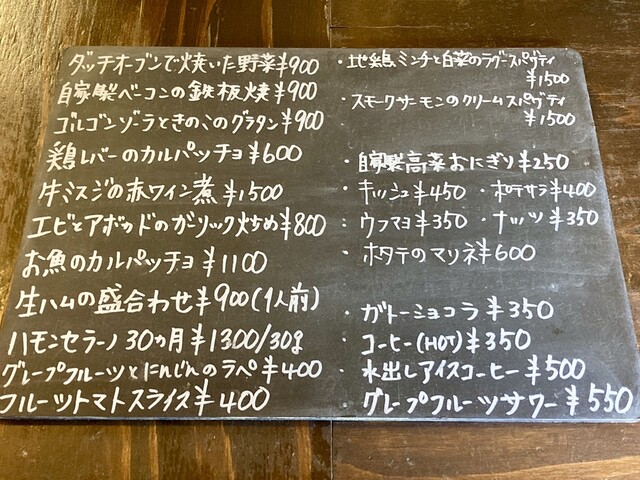 ダッチオーブンで焼いた野菜¥900
自家製ベーコンの鉄板焼¥900
ゴルゴンゾーラときのこのグラタン¥900
鶏レバーのカルパッチョ¥600
牛ミスジの赤ワイン煮¥1500
エビとアボカドのガーリック炒め¥800
お魚のカルパッチョ¥1100
生ハムの盛合わせ¥900(1人前)
ハモンセラーノ30カ月¥1300/30g
グレープフルーツとにんじんのラペ¥400
フルーツトマトスライス¥400
・地鶏ミンチと白菜のラグースパゲティ
¥1500
・スモークサーモンのクリームスパゲティ
¥1500
・自家製高菜おにぎり¥250
・キッシュ¥450 ・ポテサラ¥400
・ウフマヨ¥350 ・ナッツ¥350
・ホタテのマリネ¥600
・ガトーショコラ¥350
・コーヒー(HOT)¥350
・水出しアイスコーヒー¥500
グレープフルーツサワー¥550